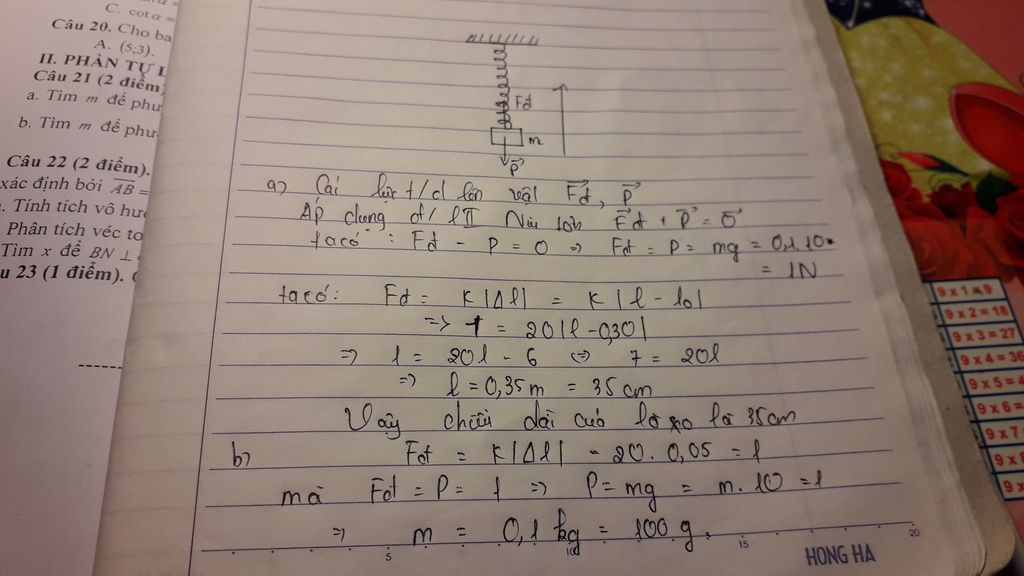 C. cot α =
Câu 20. Cho ba
A. (5;3).
II. PHẦN TỰ L
Câu 21 (2 điểm)
a. Tìm m để phư
b. Tìm m để phư
Câu 22 (2 điểm).
xác định bởi AB =
. Tính tích vô hướ
Phân tích véc to
Tìm x để BN ⊥
u 23 (1 điểm).
Fđ
m
P
a) Các lực t/d lên vật Fđ, P
Áp dụng đ/l II Niu tơn Fđ + P = 0
ta có : Fđ - P = 0 => Fđ = P = mg = 0,1.10
= 1N
ta có: Fđ = K|Δl| = K|l - lo|
=> 1 = 20|l - 0,30|
=> 1 = 20l - 6 <=> 7 = 20l
=> l = 0,35m = 35cm
Vậy chiều dài của lò xo là 35cm
b) Fđ = K|Δl| = 20. 0,05 = 1
mà Fđ = P = 1 => P = mg = m. 10 = 1
=> m = 0,1 kg = 100 g.
5 10 15 20
HONG HA
9 x 1 = 9
9 x 2 = 18
9 x 3 = 27
9 x 4 = 36
9 x 5 = 4
9 x 6 =
9 x 7
9 x 8
9 x